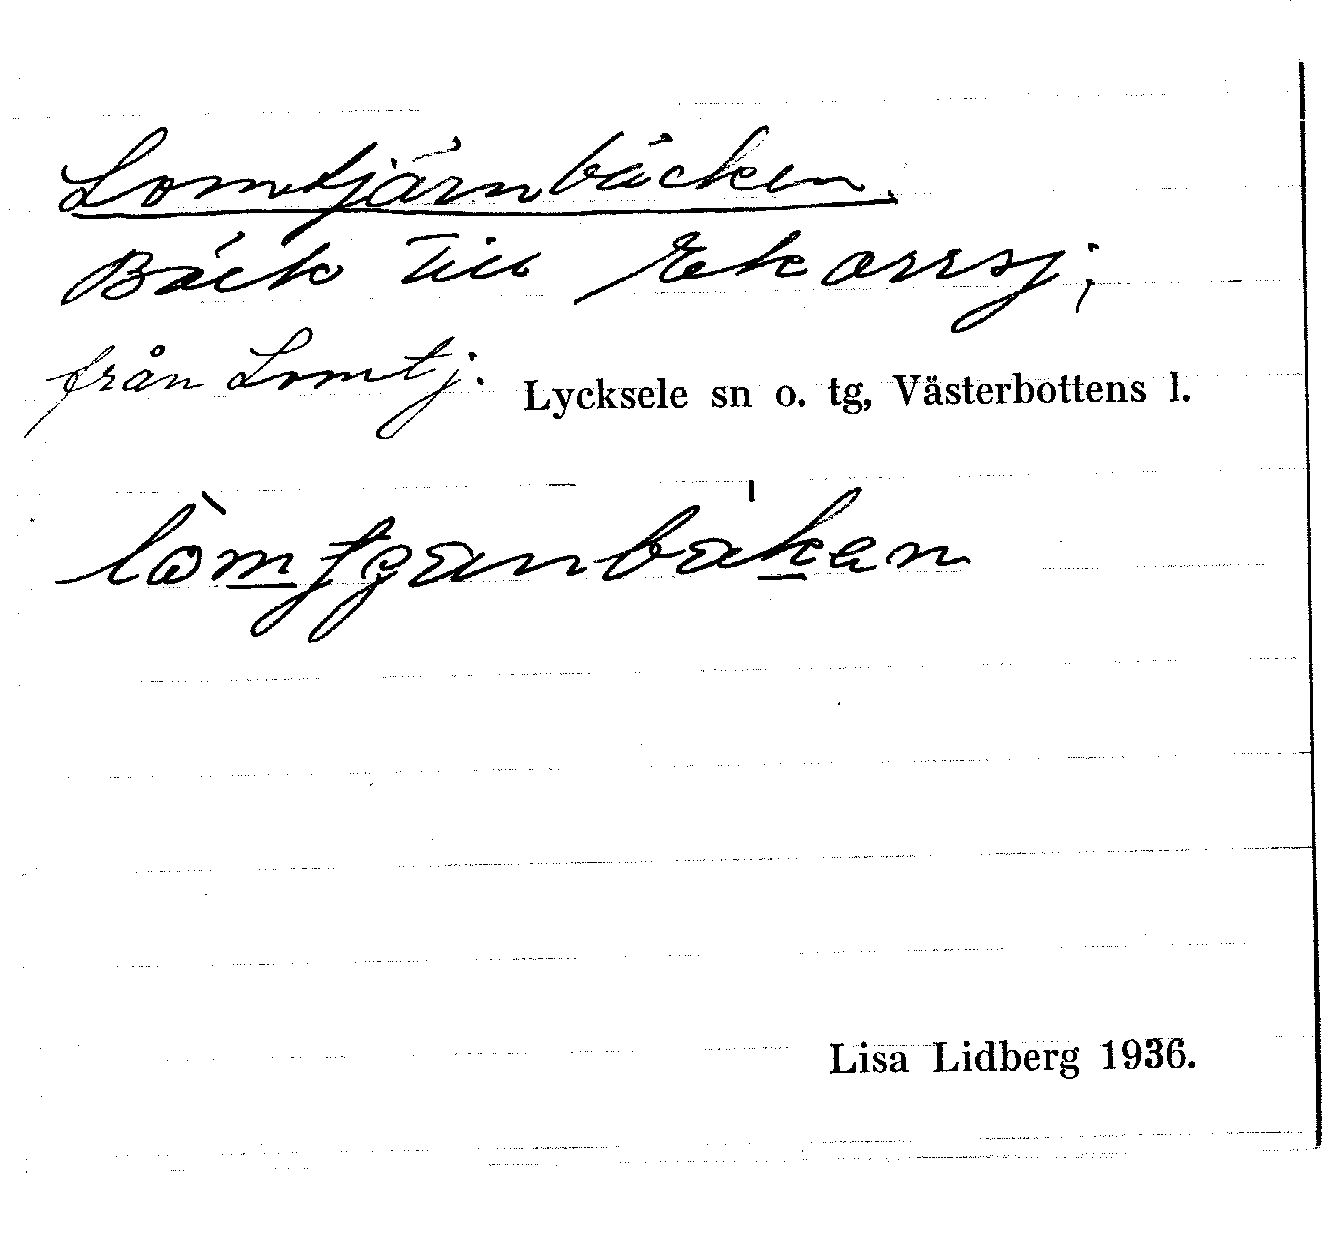 Lomtjärnbäcken.
Bäck till Ekorrsj;
från Lomtj.
Lycksele sn o. tg, Västerbottens l.
Lisa Lidberg 1936.